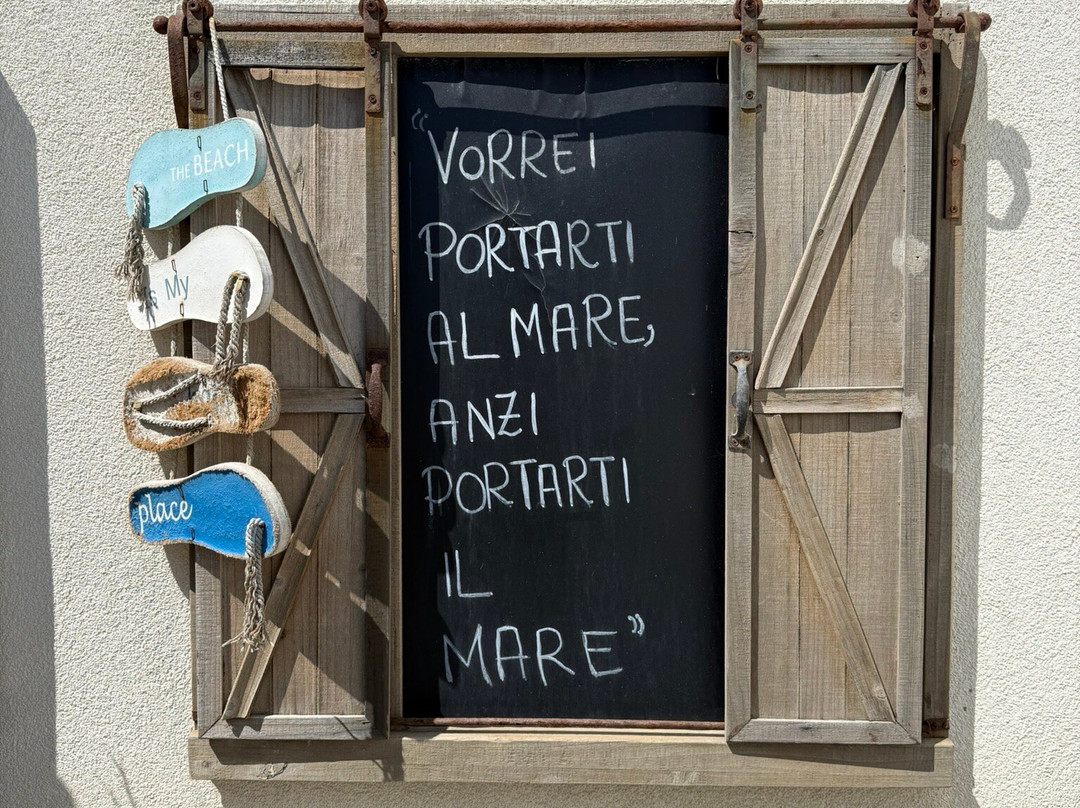 THE BEACH
is My
place
“VORREI
PORTARTI
AL MARE,
ANZI
PORTARTI
IL
MARE”